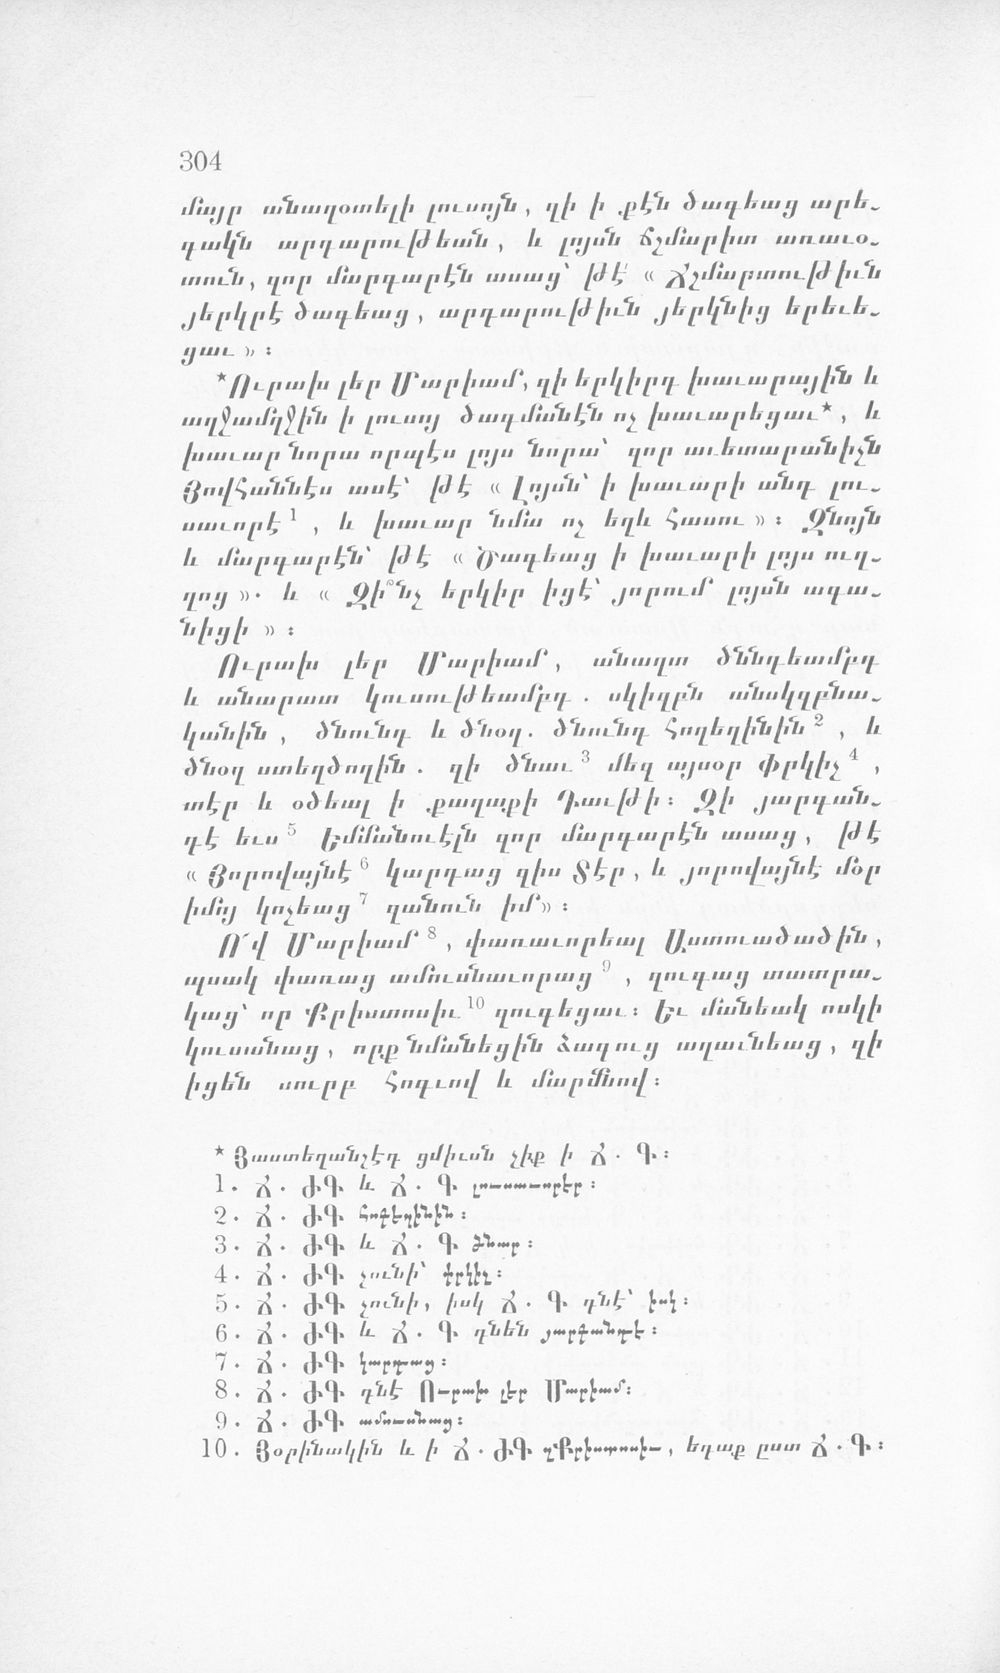 304
մայր անաղօտելի լուսոյն, զի ի քէն ծագեաց արե֊
գակն արդարութեան, և լոյսն ճշմարիտ առաւօ֊
տուն, զոր մարգարէն ասաց՝ թէ « Ճշմարտութիւն
յերկրէ ծագեաց, արդարութիւն յերկնից երեւե֊
ցաւ » :
*Ուրախ լեր Մարիամ, զի երկիրդ խաւարային և
աղջամղջին ի լուսոյ ծագմանէն ոչ խաւարեցաւ*, և
խաւար նորա որպէս լոյս նորա՝ զոր աւետարանիչն
Յովհաննէս ասէ՝ թէ « Լոյսն՝ ի խաւարի անդ լու֊
սաւորէ 1 , և խաւար նմա ոչ եղև հասու » : Զնոյն
և մարգարէն՝ թէ « Ծագեաց ի խաւարի լոյս ուղ֊
ղոց ». և « Զի՞նչ երկիր իցէ՝ յորում լոյսն ագա֊
նիցի » :
Ուրախ լեր Մարիամ, անաղտ ծննդեամբդ
և անարատ կուսութեամբդ . սկիզբն անսկզբնա֊
կանին , ծնունդ և ծնօղ. ծնունդ հողեղինին 2 , և
ծնօղ ստեղծողին . զի ծնաւ 3 մեզ այսօր փրկիչ 4 ,
տէր և օծեալ ի քաղաքի Դաւթի : Զի յարգան֊
դէ եւս 5 Էմմանուէլն զոր մարգարէն ասաց, թէ
« Յորովայնէ 6 կարդաց զիս Տէր, և յորովայնէ մօր
իմոյ կոչեաց 7 զանուն իմ» :
Ո՜վ Մարիամ 8 , փառաւորեալ Աստուածածին,
պսակ փառաց ամուսնաւորաց 9 , զուգաց տատրա֊
կաց՝ որ Քրիստոսիւ 10 զուգեցաւ : Եւ մանեակ ոսկի
կուսանաց, որք նմանեցին ձագուց աղաւնեաց, զի
իցեն սուրբ հոգւով և մարմնով :
* Յաստեղանչէդ ցմիւսն չիք ի Ճ . Գ :
1. Ճ . ԺԳ և Ճ . Գ լուսաւորէր :
2. Ճ . ԺԳ հոգեղինին :
3. Ճ . ԺԳ և Ճ . Գ ծնար :
4. Ճ . ԺԳ չունի՝ փրկիչ :
5. Ճ . ԺԳ չունի, իսկ Ճ . Գ դնէ՝ իսկ :
6. Ճ . ԺԳ և Ճ . Գ դնեն յարգանդէ :
7. Ճ . ԺԳ կարդաց :
8. Ճ . ԺԳ դնէ Ուրախ լեր Մարիամ :
9. Ճ . ԺԳ ամուսնաց :
10. Յօրինակին և ի Ճ . ԺԳ զՔրիստոսիւ, եդաք ըստ Ճ . Գ :